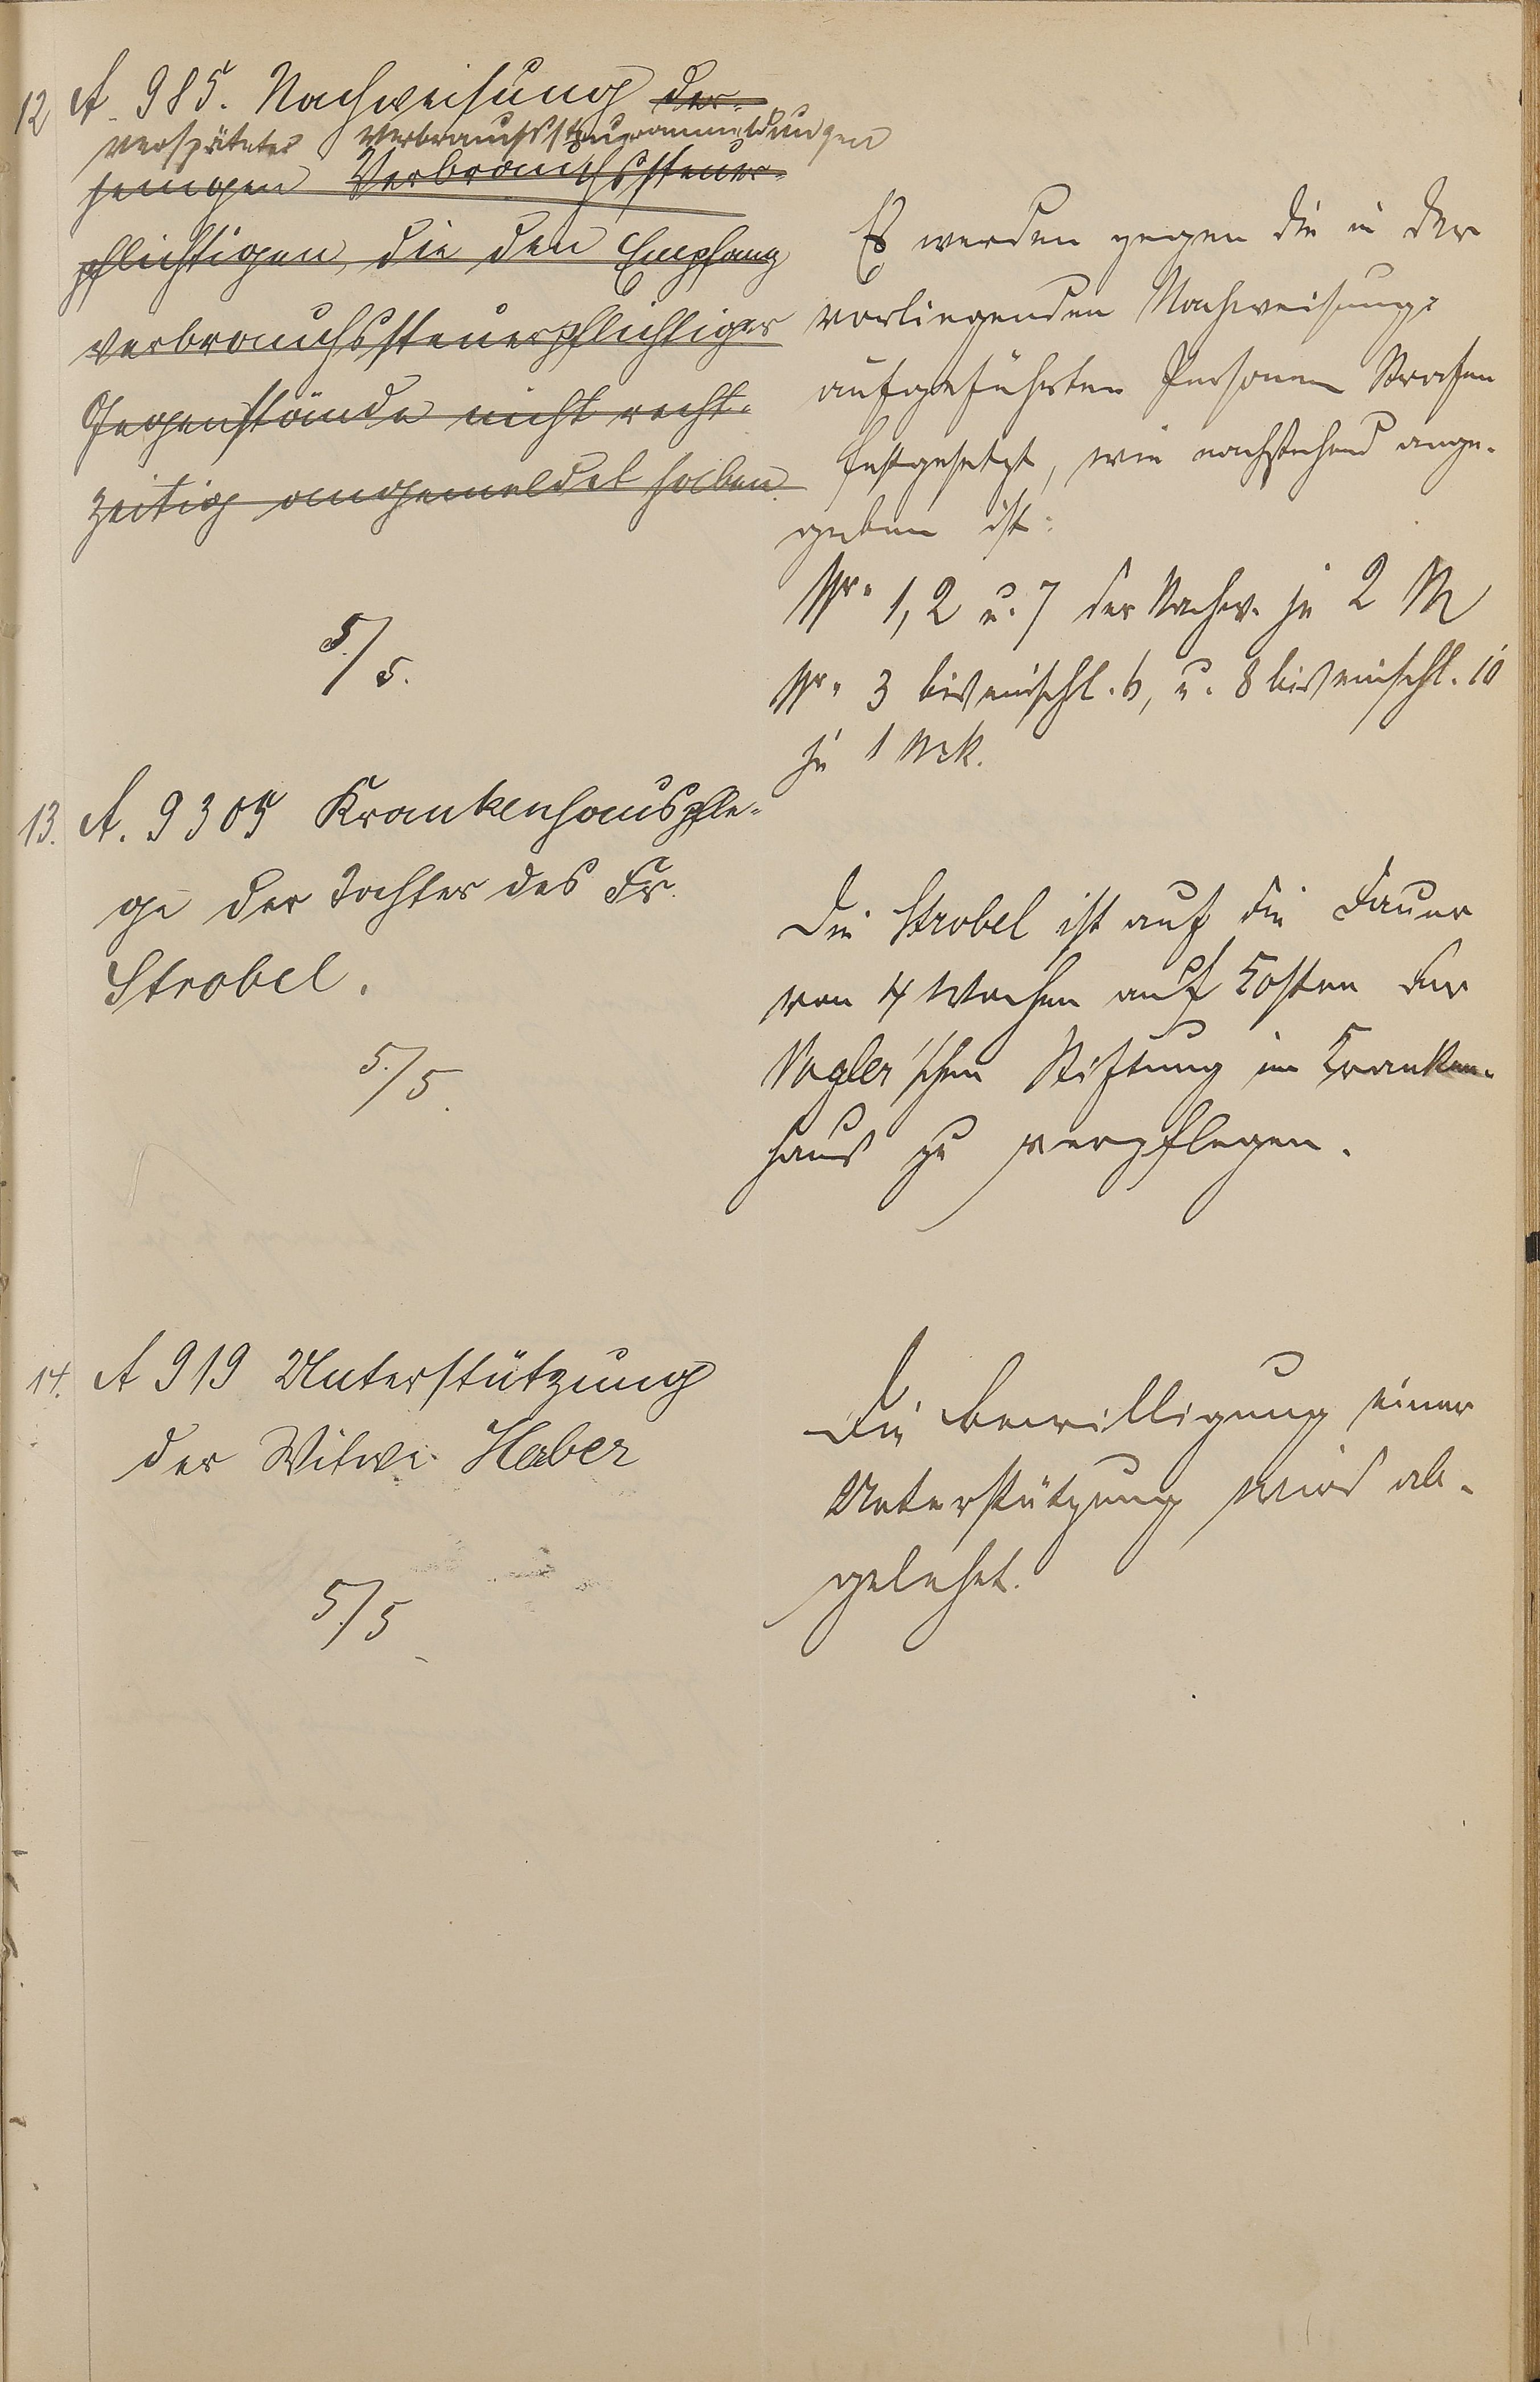 12 A. 985. Nachweisung der-
verspäteter Verbrauchssteueranmeldungen
jenigen Verbrauchssteuer-
pflichtigen, die den Empfang
verbrauchssteuerpflichtiger
Gegenstände nicht recht-
zeitig angemeldet haben.
5./5.
Es werden gegen die in der
vorliegenden Nachweisung
aufgeführten Personen Strafen
festgesetzt, wie nachstehend ange-
geben ist:
Nr. 1, 2 u. 7 der Nachw. je 2 M
Nr. 3 bis einschl. 6, u. 8 bis einschl. 10
je 1 Mk.
13. A. 9305 Krankenhauspfle-
ge der Tochter des Fr.
Strobel.
5./5.
Die Strobel ist auf die Dauer
von 4 Wochen auf Kosten der
Vogler'schen Stiftung im Kranken-
haus zu verpflegen.
14. A 919 Unterstützung
der Witwe Haber
5./5.
Die Bewilligung einer
Unterstützung wird ab-
gelehnt.